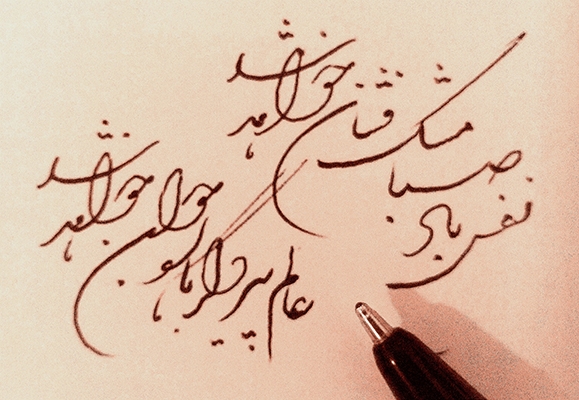 نفس باد صبا مشک فشان خواهد شد
عالم پیر دگر باره جوان خواهد شد